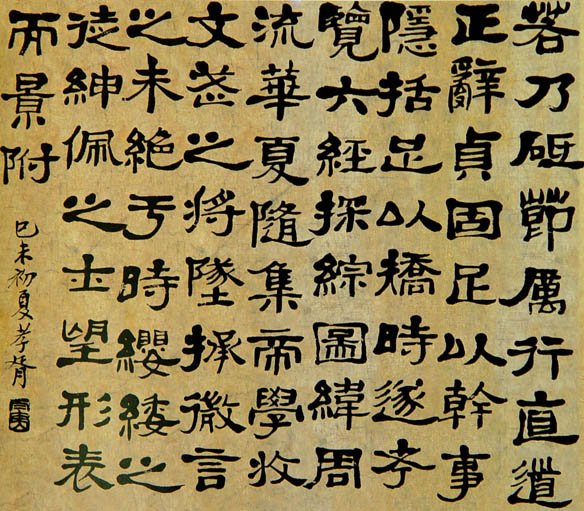 若乃砥節厲行直道
正辭貞固足以幹事
隱括足以撟時遂考
覽六經探綜圖緯周
流華夏隨集帝學收
文武之將墜拯微言
之未絕于時纓緌之
徒紳佩之士望形表
而景附
己未初夏孝胥